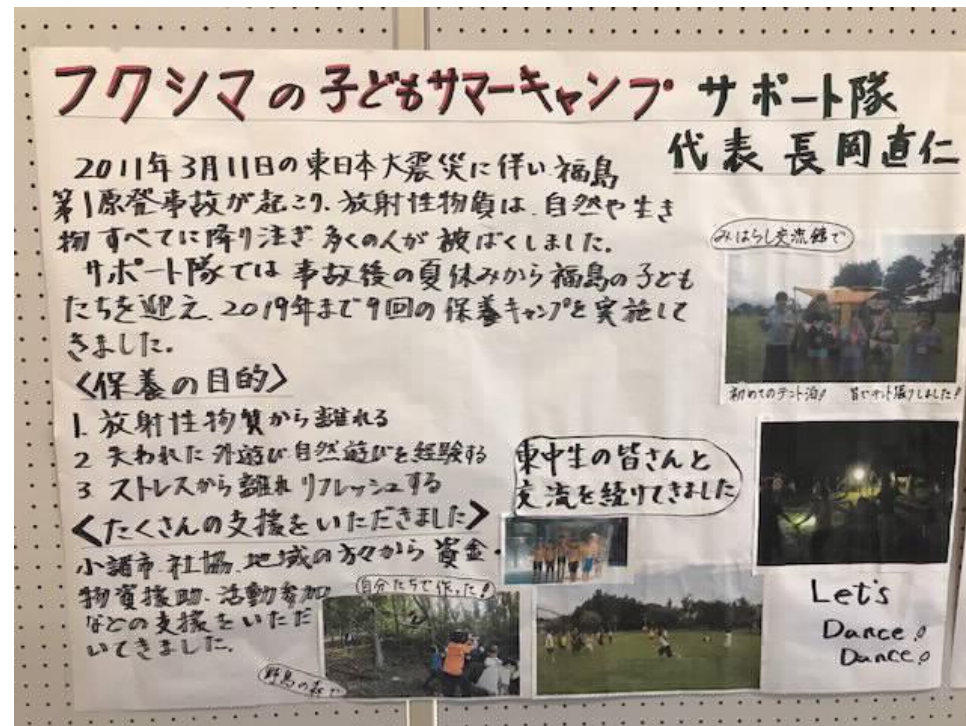 フクシマの子どもサマーキャンプ サポート隊
代表 長岡直仁
2011年3月11日の東日本大震災に伴い福島
第1原発事故が起こり、放射性物質は、自然や生き
物すべてに降り注ぎ多くの人が被ばくしました。
サポート隊では事故後の夏休みから福島の子ども
たちを迎え、2019年まで9回の保養キャンプを実施して
きました。
〈保養の目的〉
1. 放射性物質から離れる
2 失われた外遊び自然遊びを経験する
3 ストレスから離れリフレッシュする
〈たくさんの支援をいただきました〉
小諸市、社協、地域の方々から資金・
物資援助、活動参加
などの支援をいただ
いてきました。
みはらし交流館で
初めてのテント泊!
皆でテント張りしました!
東中生の皆さんと
交流を続けてきました
自分たちで作った!
野鳥の森で
Let's
Dance!
Dance!